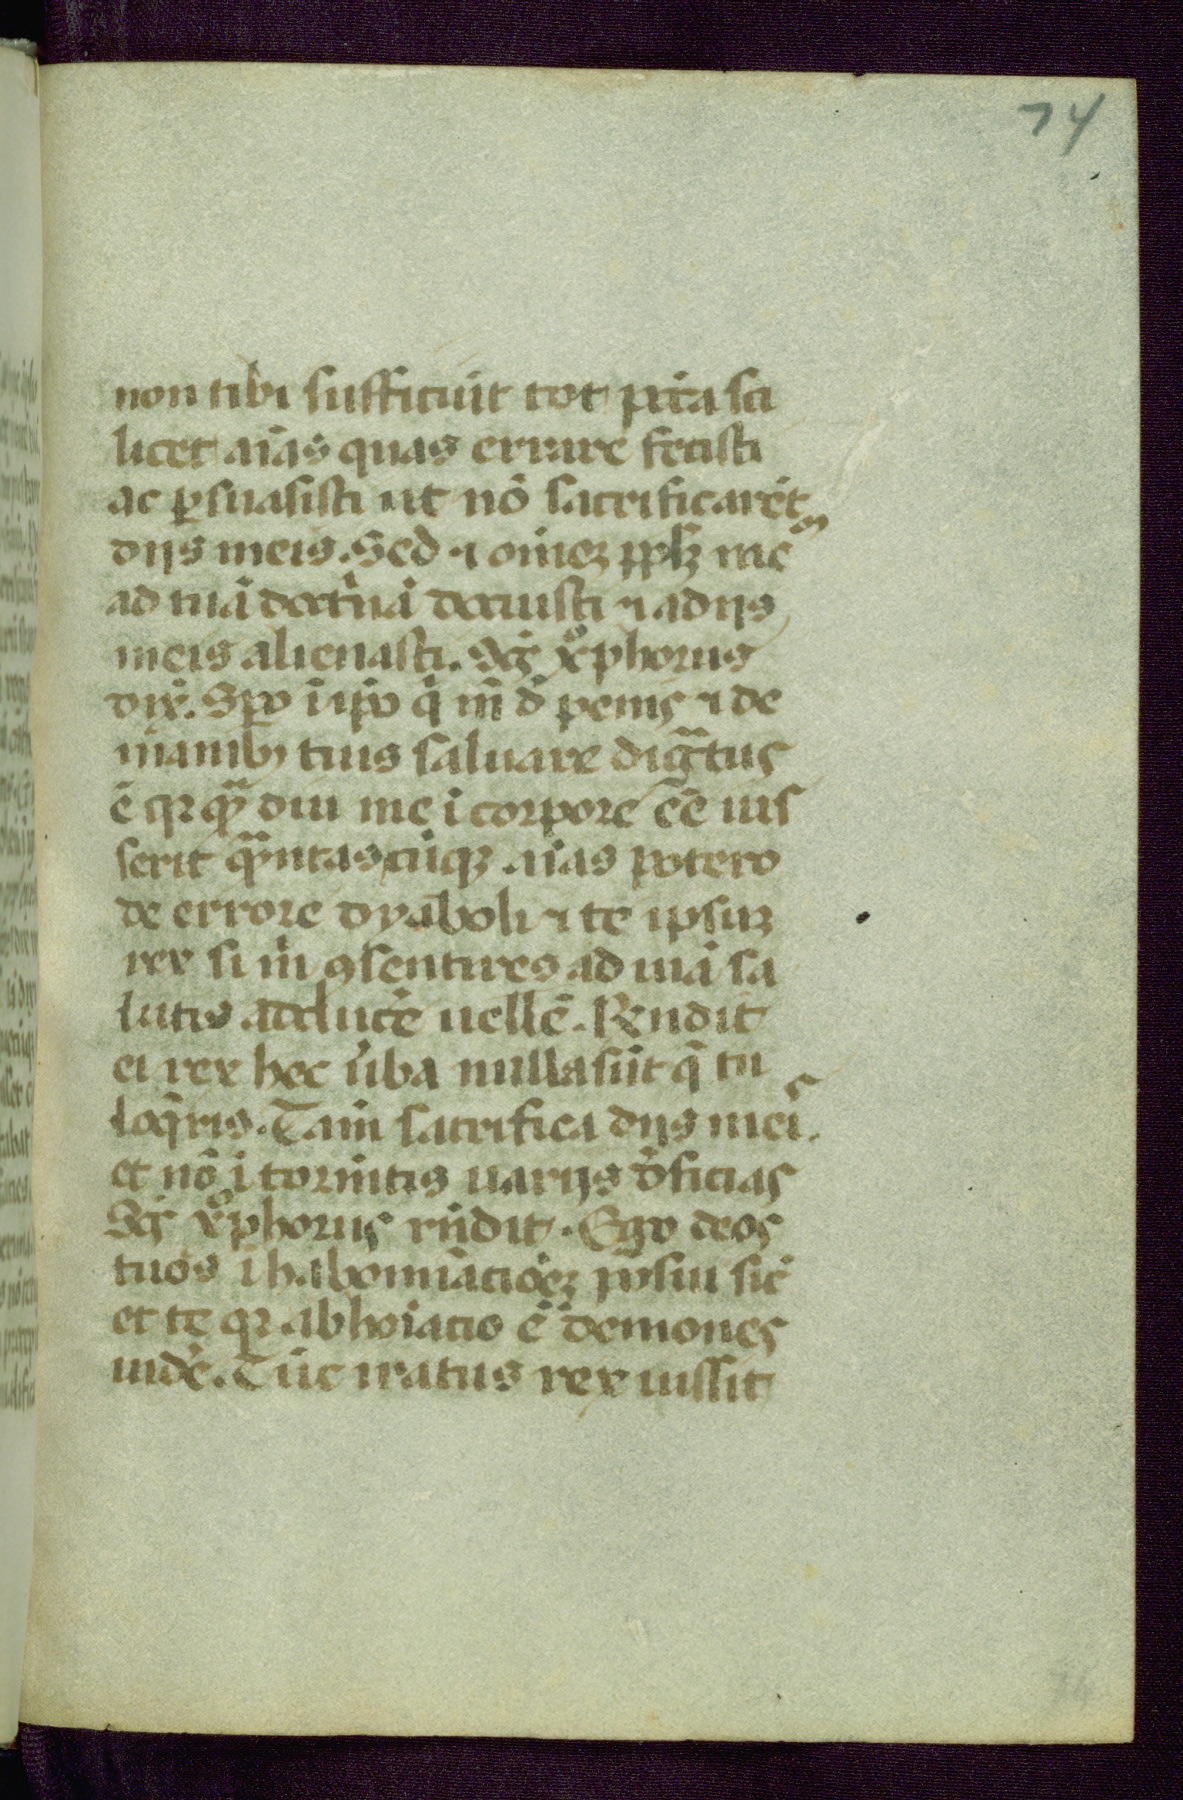 74
non tibi sufficiūt tot p̄ca sci
licet aīas quas errare fecisti
ac ꝑsuasisti ut nō sacrificarēt
dijs meis. Sed ⁊ om̄eꝫ pplꝫ meū
ad tuā doct̄nā docuisti ⁊ a dijs
meis alienasti. Sc̄s xp̄ophorus
dix̄. Sꝑo ī xp̄o q̄ m̄ d̄ penis ⁊ de
manibꝰ tuis saluare dignatus
ē qꝛ quā diu me ī corpore eē ius
serit quantascūqꝫ aīas potero
de errore dyaboli ⁊ te ipsuꝫ
rex si m̄ ꝯsentires ad uiā sa
lutis adduc̄e uellē. Rēndit
ei rex hec ūba nulla sūt q̄ tu
loq̄ris. Tam̄ sacrifica dijs meis.
et nō ī torm̄tis uarijs d̄ficias
Sc̄s xp̄ophorus rn̄dit. Ego deos
tuos ī habominācioēꝫ posui sic̄
et te qꝛ abhoīacio ē demones
uid̄e. Tūc iratus rex iussit